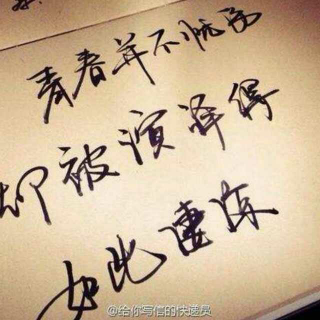 青春并不忧伤
却被演译得
如此凄凉
@给你写信的快递员